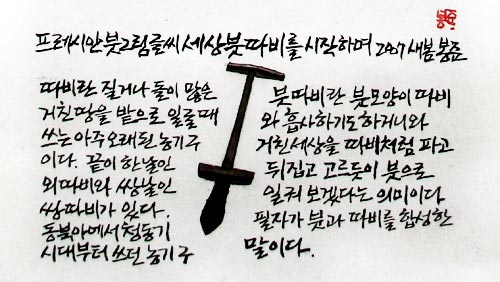 프레시안 붓그림글씨 세상 붓따비를 시작하며 2007 새봄 봉준
따비란 질거나 돌이 많은
거친 땅을 밭으로 일굴 때
쓰는 아주 오래된 농기구
이다. 끝이 한날인
외따비와 쌍날인
쌍따비가 있다.
동북아에서 청동기
시대부터 쓰던 농기구
붓따비란 붓모양이 따비
와 흡사하기도 하거니와
거친세상을 따비처럼 파고
뒤집고 고르듯이 붓으로
일궈 보겠다는 의미이다
필자가 붓과 따비를 합성한
말이다.